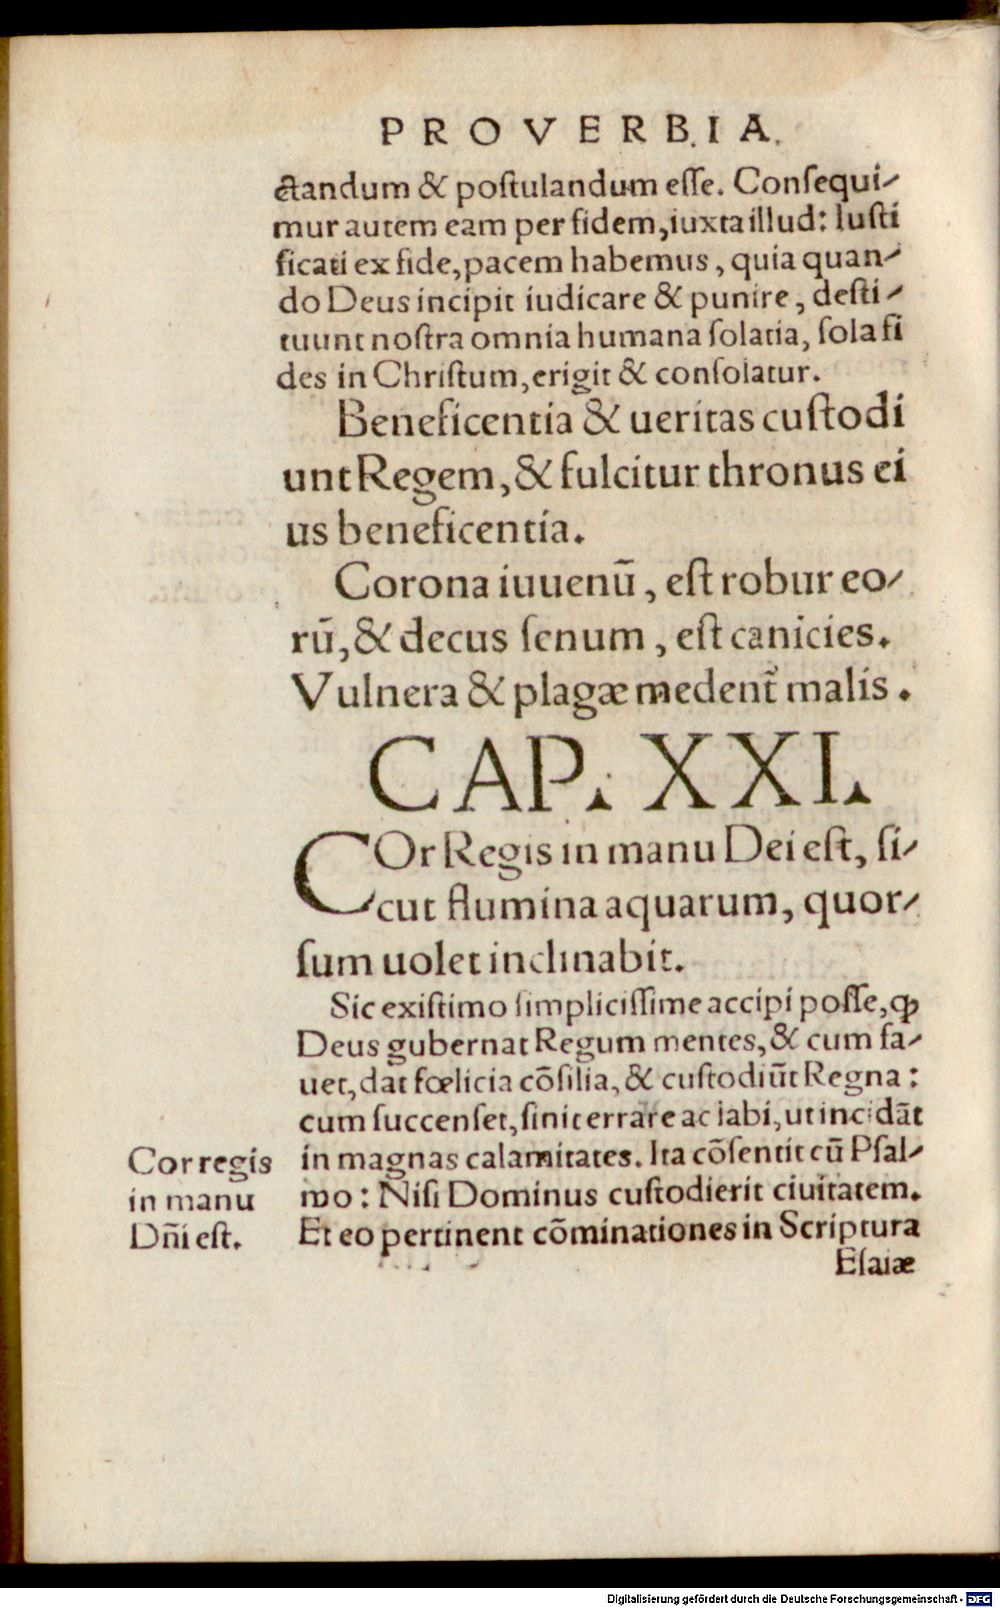 PROVERBIA.
ctandum & poſtulandum eſſe. Conſequi-
mur autem eam per fidem, iuxta illud: Iuſti
ficati ex fide, pacem habemus, quia quan-
do Deus incipit iudicare & punire, deſti-
tuunt noſtra omnia humana ſolatia, ſola fi
des in Chriſtum, erigit & conſolatur.
Beneficentia & ueritas cuſtodi
unt Regem, & fulcitur thronus ei
us beneficentia.
Corona iuuenū, eſt robur eo-
rū, & decus ſenum, eſt canicies.
Vulnera & plagæ medent᷑ malis.
CAP. XXI.
COr Regis in manu Dei eſt, ſi-
cut flumina aquarum, quor-
ſum uolet inclinabit.
Sic exiſtimo ſimpliciſſime accipi poſſe, ꝙ
Deus gubernat Regum mentes, & cum fa-
uet, dat fœlicia cōſilia, & cuſtodiūt Regna:
cum ſuccenſet, ſinit errare ac labi, ut incidāt
in magnas calamitates. Ita cōſentit cū Pſal-
mo: Niſi Dominus cuſtodierit ciuitatem.
Et eo pertinent cōminationes in Scriptura
Eſaiæ
Cor regis
in manu
Dñi eſt.
Digitalisierung gefördert durch die Deutsche Forschungsgemeinschaft - DFG